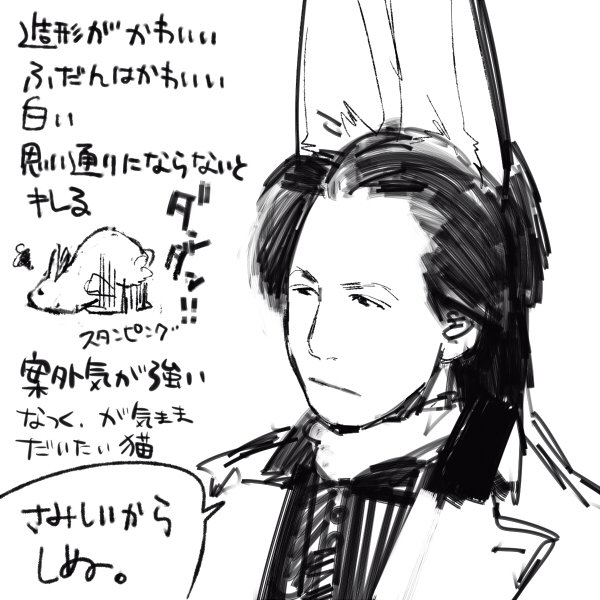 造形がかわいい
ふだんはかわいい
白い
思い通りにならないと
キレる
ダンダン!!
スタンピング
案外気が強い
なつく、が気まま
だいたい猫
さみしいから
しぬー。